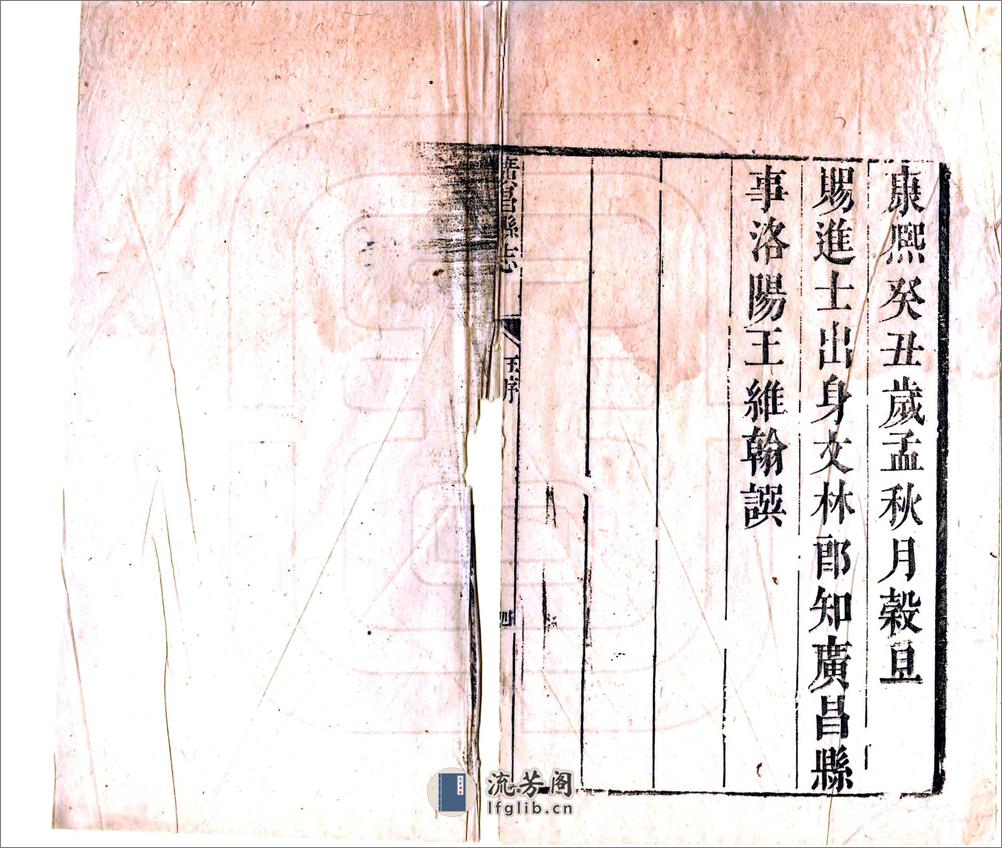 康熙癸丑歲孟秋月穀旦
賜進士出身文林郎知廣昌縣
事洛陽王維翰譔
廣昌縣志
王序
四
流芳阁
lfglib.cn